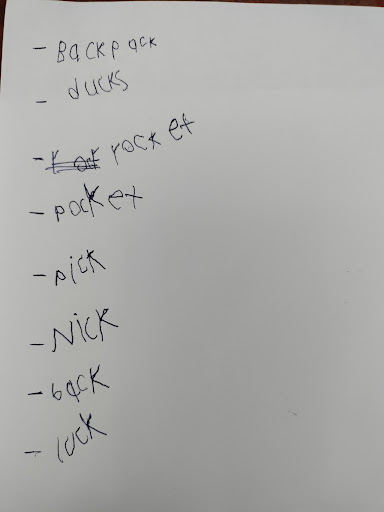 - Backpack
- ducks
- rocket
- pocket
- pick
- Nick
- back
- luck